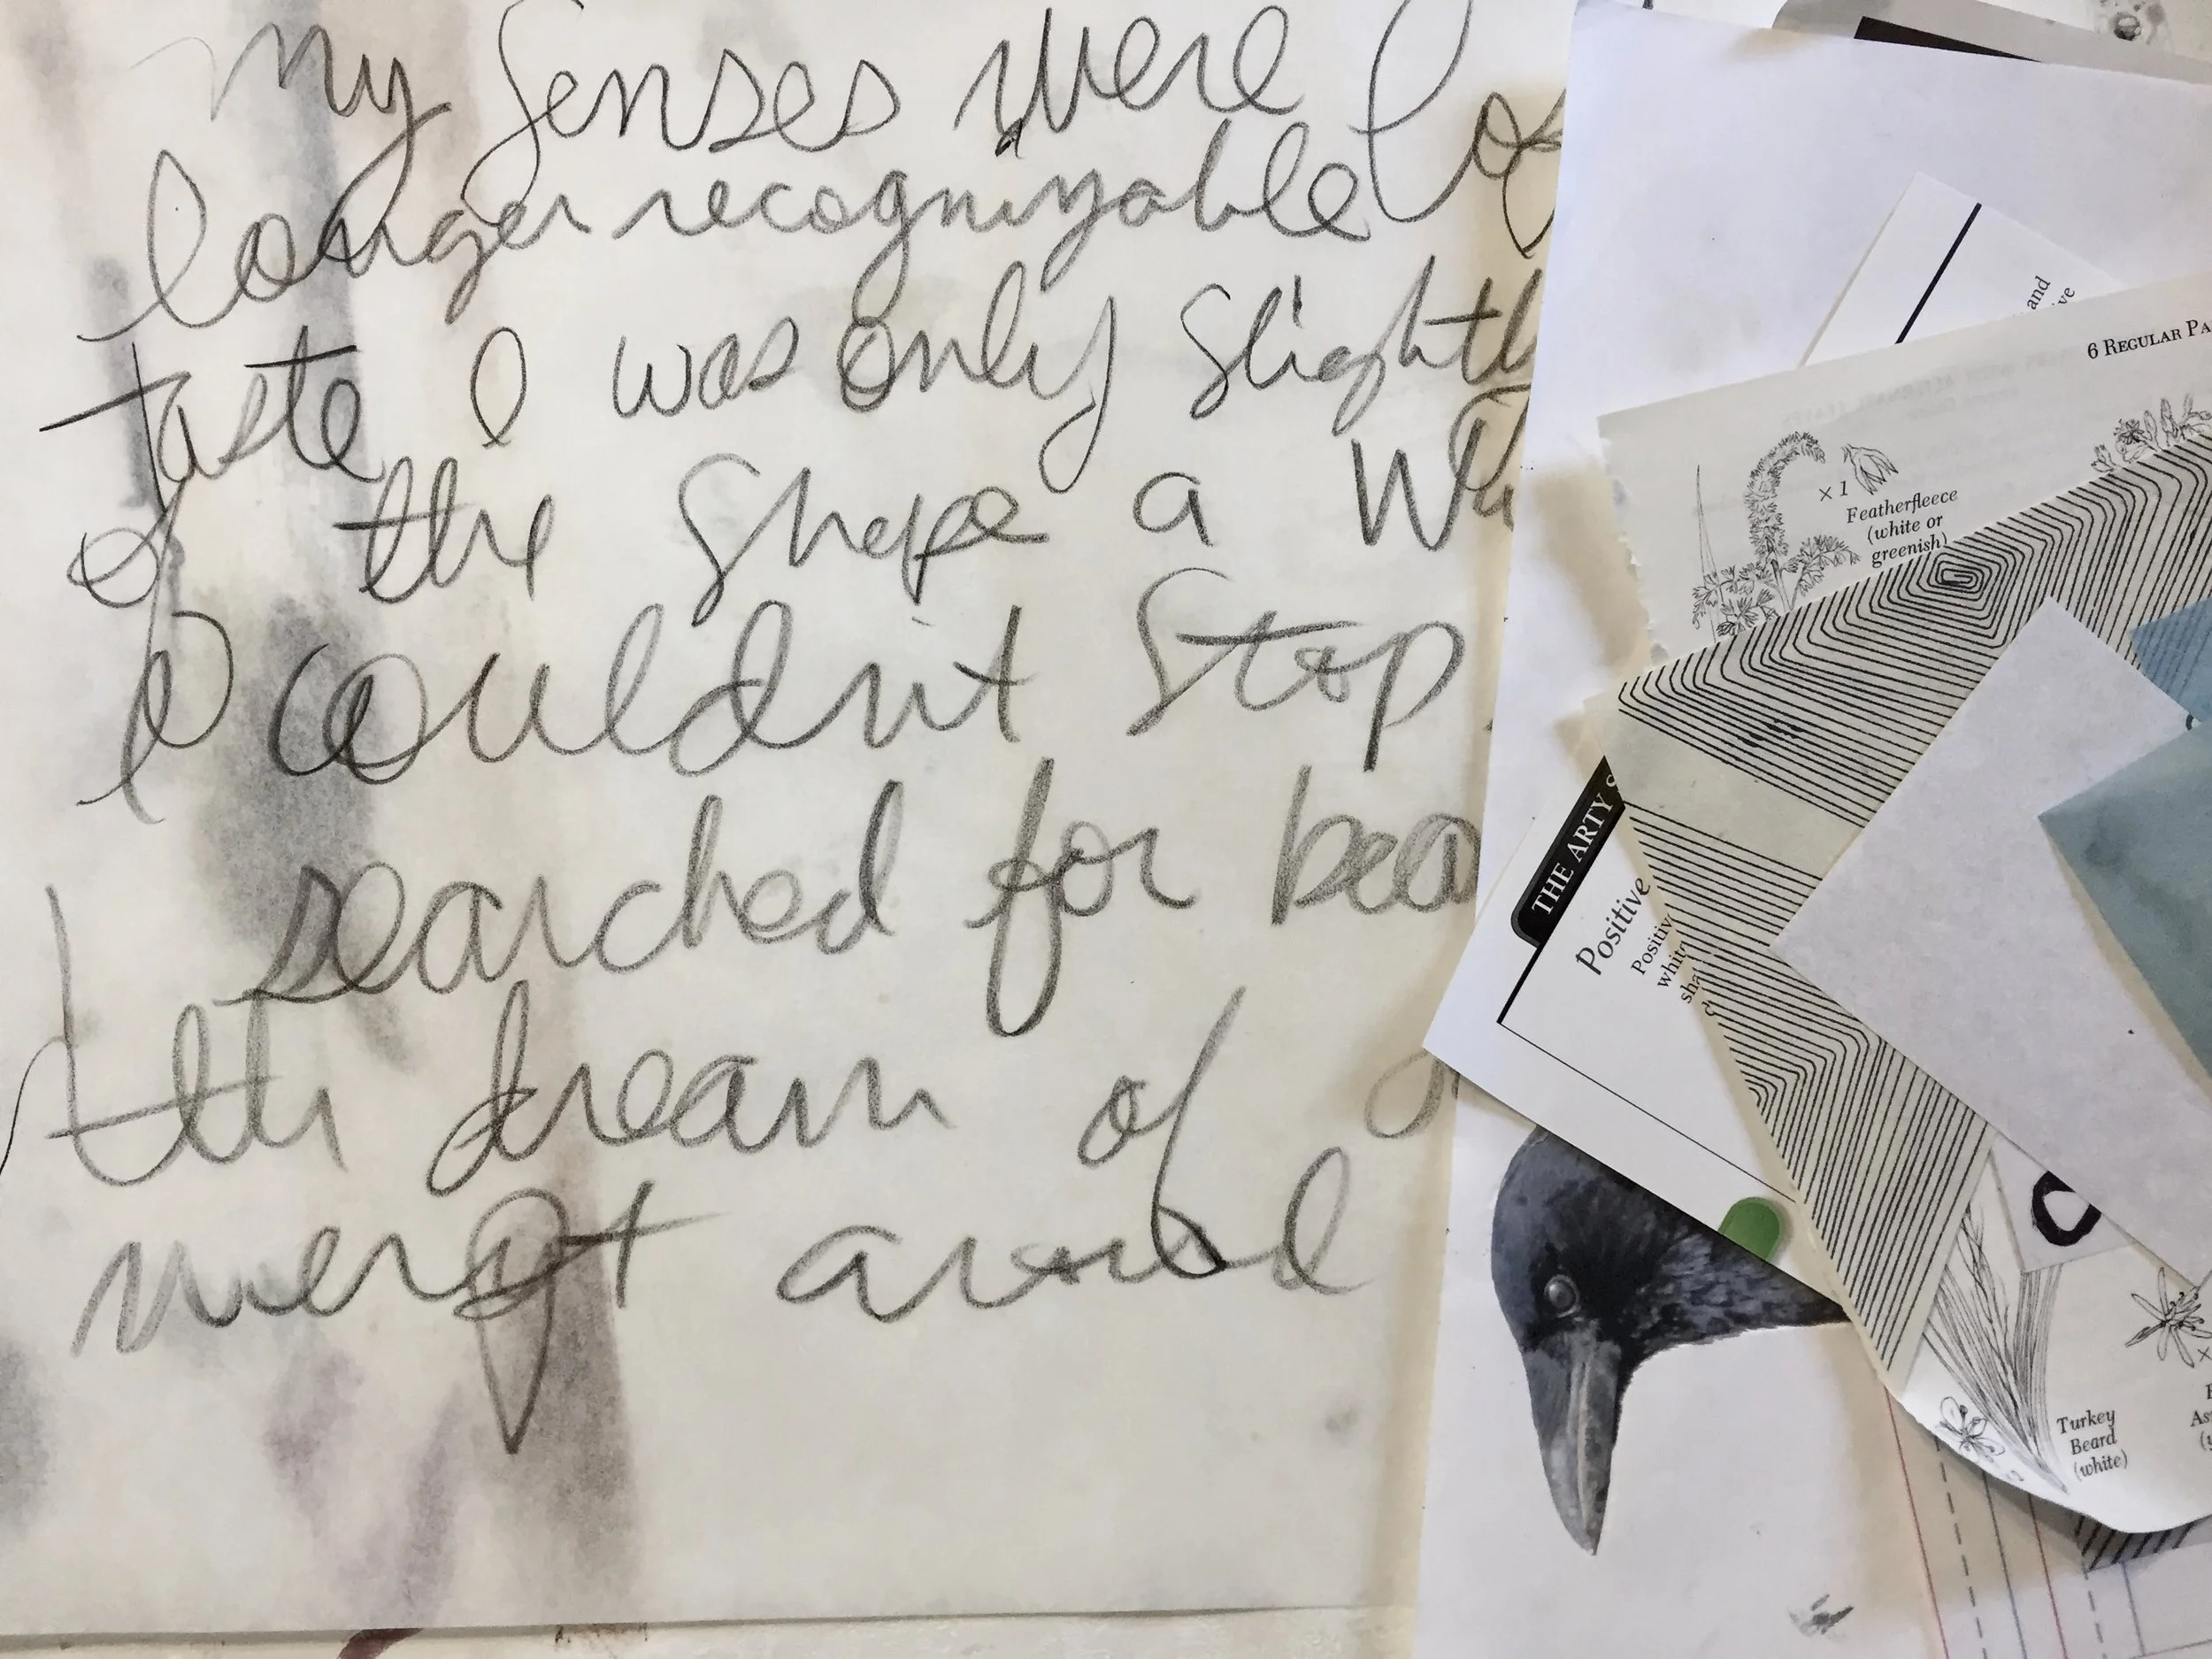 my senses were
longer recognizable
taste I was only slightly
of the shape a
I couldn't stop
searched for
the dream of
and
6 REGULAR PA
×1
Featherfleece
(white or
greenish)
THE ARTY S
Positive
Positiv
white
sha
Turkey
Beard
(white)